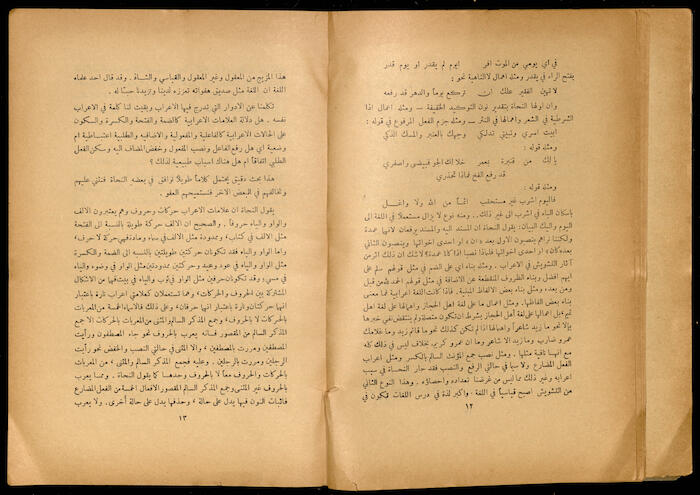 في اي يومي من الموت افر ايوم لم يقدر ام يوم قدر
بفتح الراء في يقدر ومثله اهمال لا الناهية نحو :
لا تهين الفقير علك ان تركع يوماً والدهر قد رفعه
وان اولها النحاة بتقدير نون التوكيد الخفيفة — ومثله اهمال اذا
الشرطية في الشعر واهمالها في النثر — ومثله جزم الفعل المرفوع في قوله :
ابيت اسري وتبيتي تدلكي وجهك بالعنبر والمسك الذكي
ومثله قوله :
يا لك من قنبرة بمعمر خلا لك الجو فبيضي واصفري
قد رفع الفخ فماذا تحذري
ومثله قوله :
فاليوم اشرب غير مستحقب اثماً من الله ولا واغل
باسكان الباء في اشرب الى غير ذلك . ومنه نوع لا يزال مستعملا في اللغة الى
اليوم واليك البيان: يقول النحاة ان المسند اليه والمسند يرفعان لانهما عمدة
ولكننا نراهم ينصبون الاول بعد «ان» او احدى اخواتها وينصبون الثاني
بعد «كان» او احدى اخواتها فلماذا نصبا اذا كانا عمدة؟ لاشك ان ذلك اثر من
آثار التشويش في الاعراب . ومثله بناء اي على الضم في مثل قولهم سلم على
ايهم افضل وبناء الظروف المنقطعة عن الاضافة في مثل قولهم الحمد لله من قبل
ومن بعد، ومثله بناء بعض الالفاظ المبنية . فاذا كانت اللغة اعرابية فما معنى
بناء بعض الفاظها. ومثل اعمال ما على لغة اهل الحجاز واهمالها على لغة اهل
تميم بل اعمالها على لغة اهل الحجاز بشرط ان تكون متصلة ولم ينتقض نفي خبرها
بإلا نحو ما زيد شاعراً واهمالها اذا لم تكن كذلك نحو ما قائم زيد وما غلامك
عمرو ضارب وما زيد الا شاعر وما ان عمرو كريم بخلاف ليس في ذلك كله
مع انهما نافية مثلها . ومثل نصب جمع المؤنث السالم بالكسر ومثل اعراب
الفعل المضارع ولا سيما في حالتي الرفع والنصب فقد حار النحاة في سبب
اعرابه وغير ذلك مما ليس من غرضنا تعداده واحصاؤه . وهذا النوع الثاني
من التشويش اصبح قياسياً في اللغة . واكبر لذة في درس اللغات تكون في
١٢
هذا المزيج من المعقول وغير المعقول والقياسي والشاذ . وقد قال احد علماء
اللغة ان اللغة مثل صديق هفواته تعززه لدينا وتزيدنا حباً له .
تكلمنا عن الادوار التي تدرج فيها الاعراب وبقيت لنا كلمة في الاعراب
نفسه . هل دلالة العلامات الاعرابية كالضمة والفتحة والكسرة والسكون
على الحالات الاعرابية كالفاعلية والمفعولية والاضافة والطلبية اعتباطية ام
وضعية اي هل رفع الفاعل ونصب المفعول وخفض المضاف اليه وسكن الفعل
الطلبي اتفاقاً ام هل هناك اسباب طبيعية لذلك ؟
هذا بحث دقيق يحتمل كلاماً طويلاً نوافق في بعضه النحاة فنثني عليهم
ونخالفهم في البعض الاخر فنستميحهم العفو .
يقول النحاة ان علامات الاعراب حركات وحروف وهم يعتبرون الالف
والواو والياء حروفاً . والصحيح ان الالف حركة طويلة بالنسبة الى الفتحة
مثل الالف في كتاب، وممدودة مثل الالف في سماء وما دة فهي حركة لا حرف.
واما الواو والياء فقد تكونان حركتين طويلتين بالنسبة الى الضمة والكسرة
مثل الواو والياء في عود وعيد وحركتين ممدودتين مثل الواو في وضوء والياء
في مسيء وقد تكونان حرفين مثل الواو في ثوب والياء في بيت فهما من الاشكال
المشتركة بين الحروف والحركات، وهما تستعملان كعلامتي اعراب تارة باعتبار
انهما حركتان وتارة باعتبار انهما حرفان . وعلى ذلك فالاسماء الخمسة من المعربات
بالحركات لا بالحروف، وجمع المذكر السالم والمثنى من المعربات بالحركات الا جمع
المذكر السالم من المقصور فانه يعرب بالحروف نحو جاء المصطفون ورأيت
المصطفين ومررت بالمصطفين ، والا المثنى في حالتي النصب والخفض نحو رأيت
الرجلين ومررت بالرجلين . وعليه فجمع المذكر السالم والمثنى ، من المعربات
بالحركات والحروف معاً لا بالحروف وحدها كما يقول النحاة . ومما يعرب
بالحروف غير المثنى وجمع المذكر السالم المقصور الافعال الخمسة من الفعل المضارع
فاثبات النون فيها يدل على حالة ، وحذفها يدل على حالة أخرى . ولا يعرب
١٣